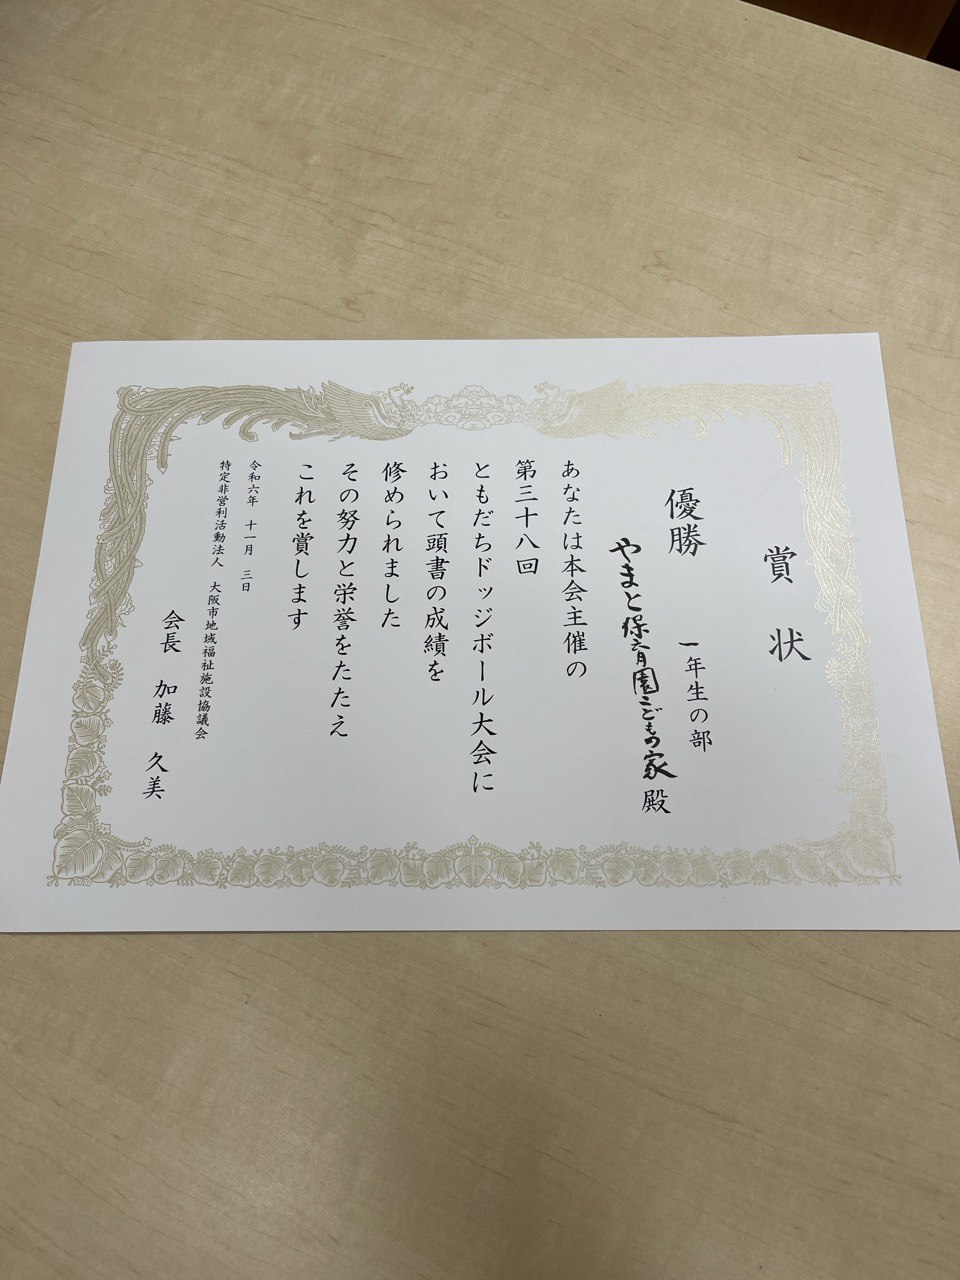 賞状
優勝 一年生の部
やまと保育園こどもの家 殿
あなたは本会主催の
第三十八回
ともだちドッジボール大会に
おいて頭書の成績を
修められました
その努力と栄誉をたたえ
これを賞します
令和六年 十一月 三日
特定非営利活動法人 大阪市地域福祉施設協議会
会長 加藤 久美